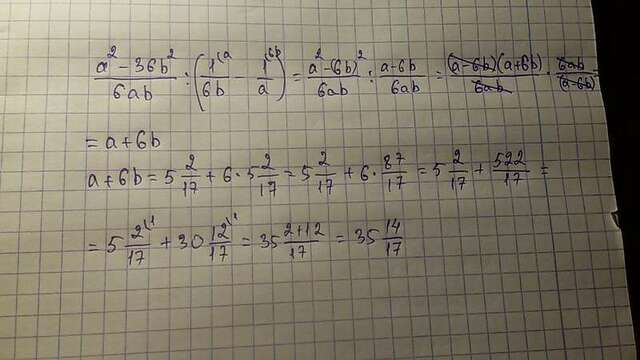 a²-36b²/6ab : (1/6b - 1/a) = a²-(6b)²/6ab : a-6b/6ab = (a-6b)(a+6b)/6ab · 6ab/(a-6b) =
= a+6b
a+6b = 5 2/17 + 6·5 2/17 = 5 2/17 + 6·87/17 = 5 2/17 + 522/17 =
= 5 2/17 + 30 12/17 = 35 2+12/17 = 35 14/17